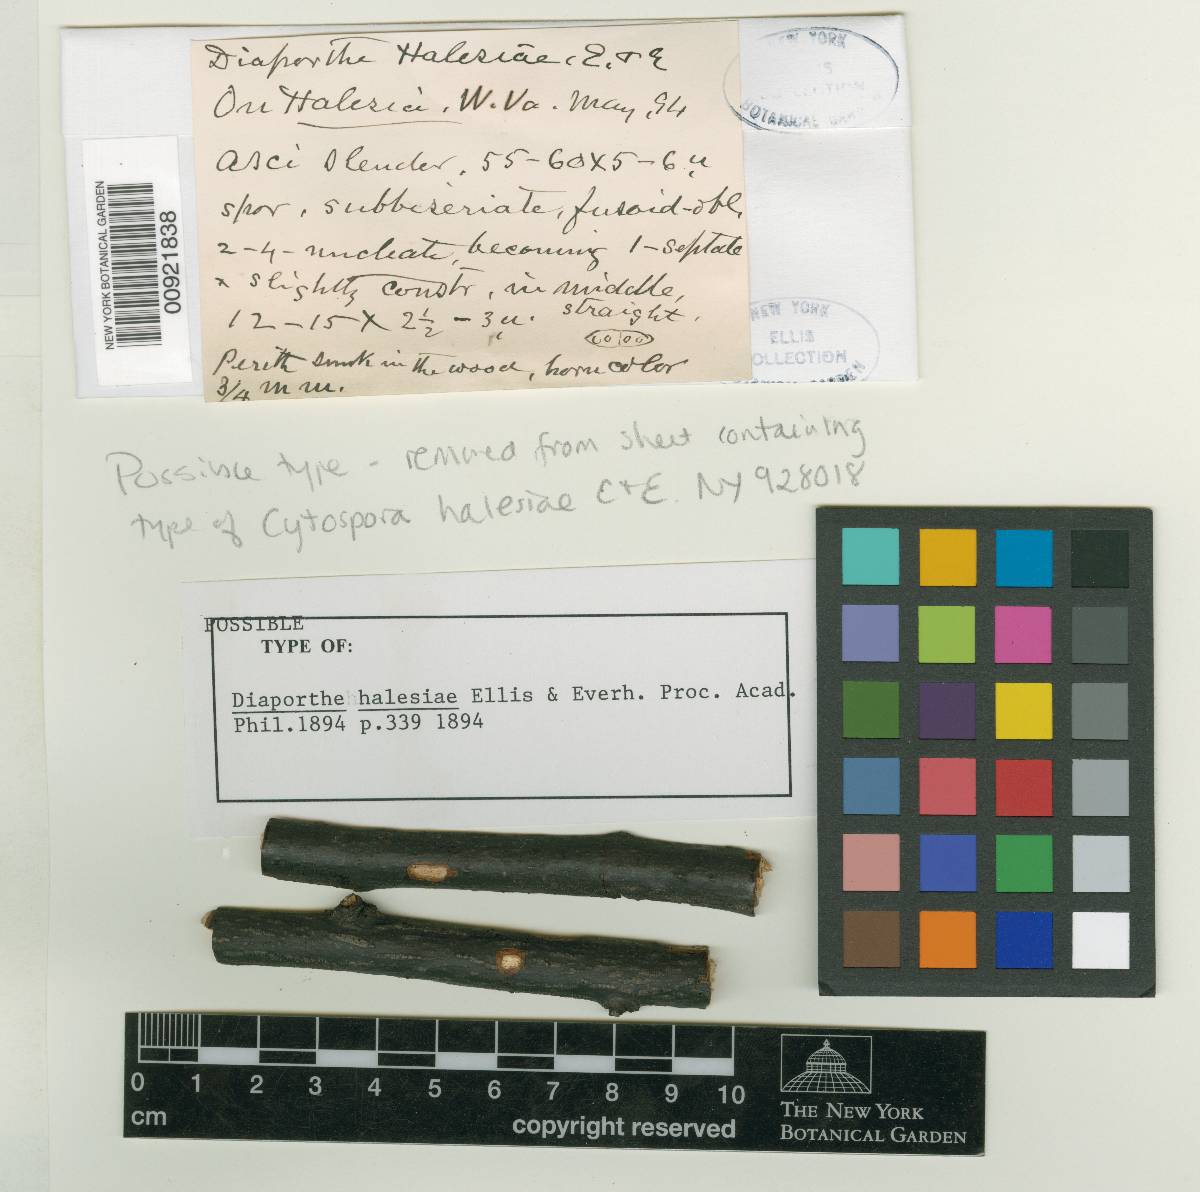 Diaporthe Halesiae, E. & E
On Halesia, W. Va. May, 94
Asci slender, 55-60x5-6 u
spor, subbiseriate, fusoid-obl,
2-4-nucleate, becoming 1-septate
& slightly constr, in middle,
12-15 x 2½-3 u. straight.
Perith sunk in the wood, horn color
3/4 mm.
NEW YORK
BOTANICAL
NEW YORK
ELLIS
COLLECTION
GARDEN
NEW YORK BOTANICAL GARDEN
00921838
Possible type - removed from sheet containing
type of Cytospora halesiae C+E. NY 928018
POSSIBLE
TYPE OF:
Diaporthe halesiae Ellis & Everh. Proc. Acad.
Phil.1894 p.339 1894
0 1 2 3 4 5 6 7 8 9 10
cm
copyright reserved
THE NEW YORK
BOTANICAL GARDEN